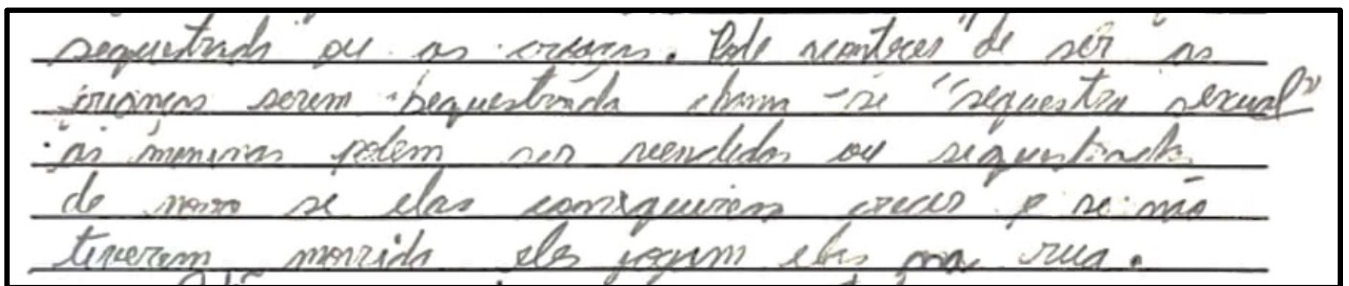 sequestrada ou as crianças. Pode acontecer de ser as
crianças serem sequestrada chama-se "sequestro sexual"
as meninas podem ser revendidas ou sequestradas
de novo se elas conseguirem crescer e se não
tiverem morrido eles jogam elas na rua.